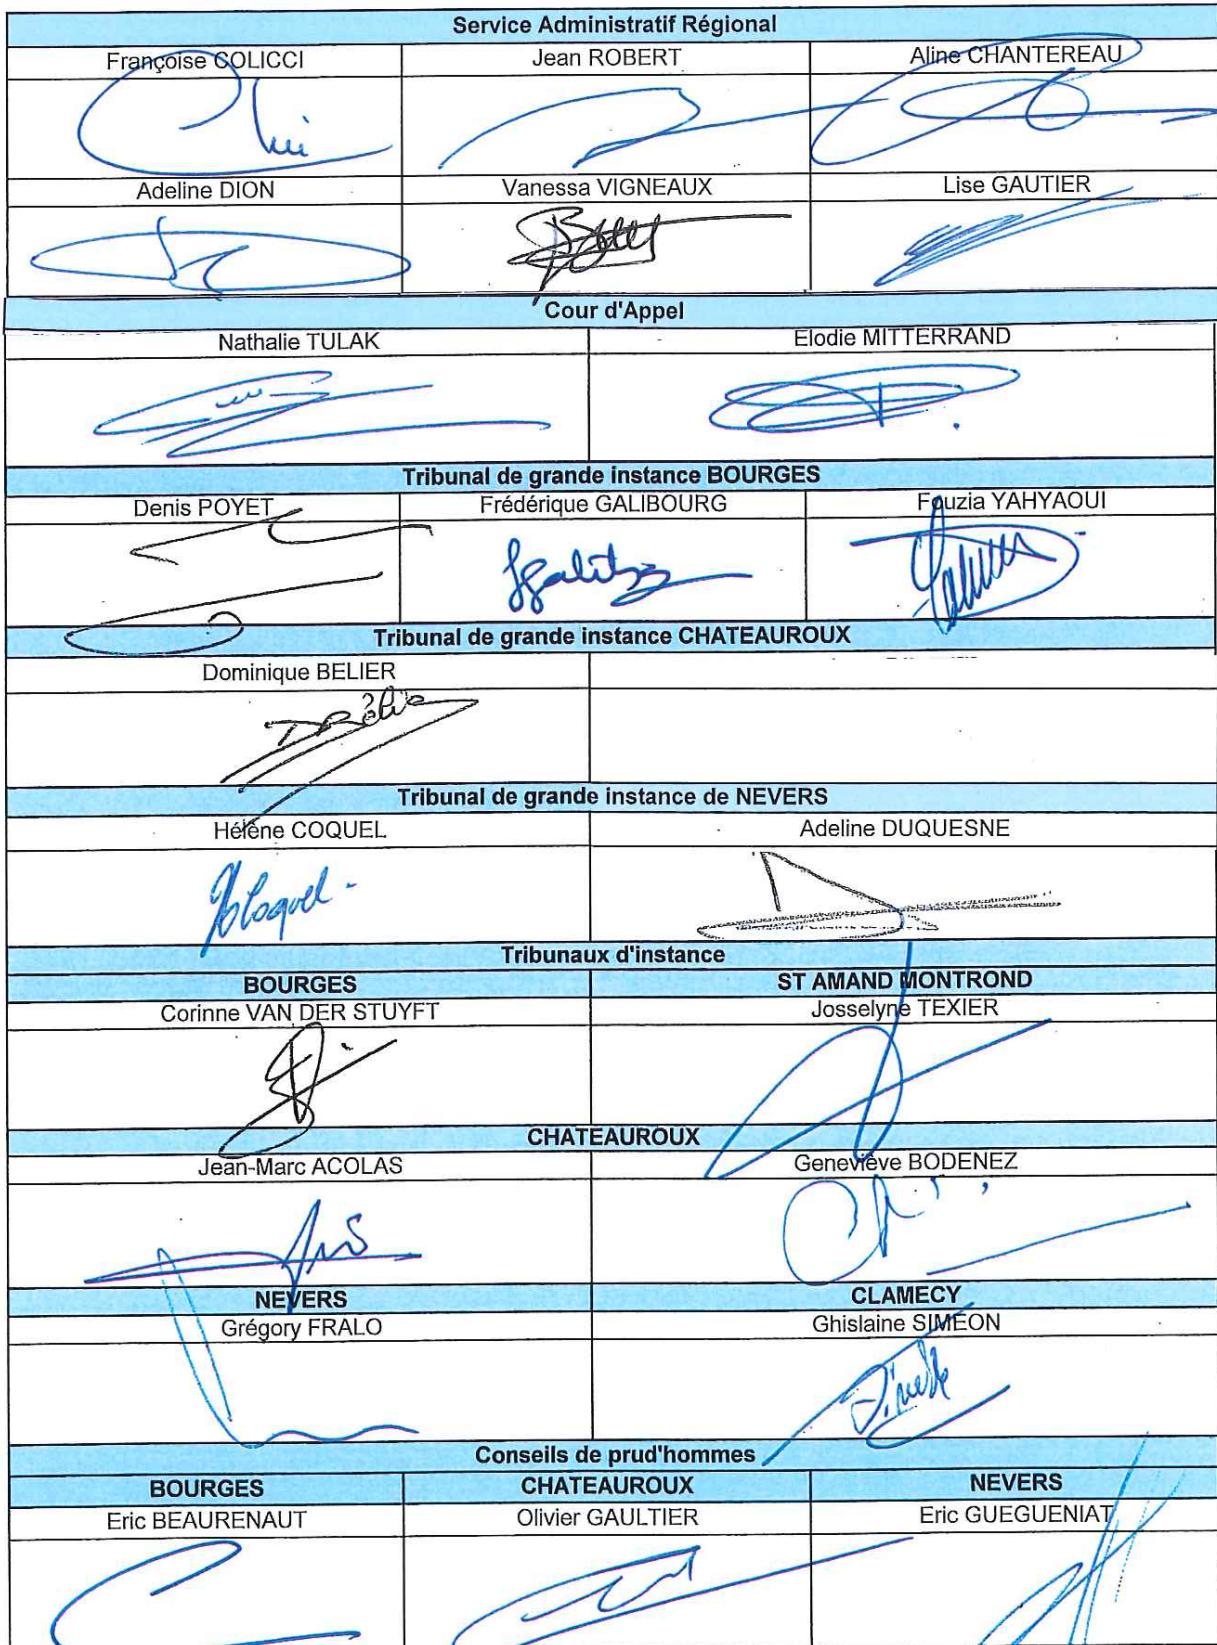 Service Administratif Régional
Françoise COLICCI Jean ROBERT Aline CHANTEREAU
Adeline DION Vanessa VIGNEAUX Lise GAUTIER
Cour d'Appel
Nathalie TULAK Elodie MITTERRAND
Tribunal de grande instance BOURGES
Denis POYET Frédérique GALIBOURG Fouzia YAHYAOUI
Tribunal de grande instance CHATEAUROUX
Dominique BELIER
Tribunal de grande instance de NEVERS
Hélène COQUEL Adeline DUQUESNE
HCoquel
Tribunaux d'instance
BOURGES ST AMAND MONTROND
Corinne VAN DER STUYFT Josselyne TEXIER
CHATEAUROUX
Jean-Marc ACOLAS Geneviève BODENEZ
NEVERS CLAMECY
Grégory FRALO Ghislaine SIMEON
Conseils de prud'hommes
BOURGES CHATEAUROUX NEVERS
Eric BEAURENAUT Olivier GAULTIER Eric GUEGUENIAT